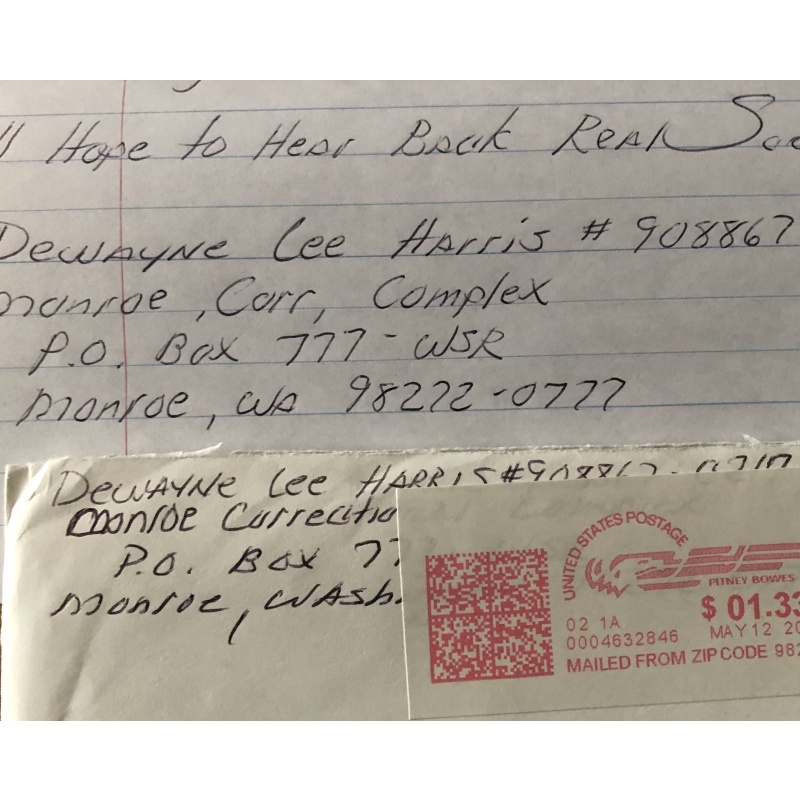 Hope to Hear Back Real
Dewayne Lee Harris # 908867
Monroe, Corr, Complex
P.O. Box 777-WSR
Monroe, WA 98272-0777
DewAYNe Lee HARRIS #908867
Monroe
P.O. Box
Monroe, WAsh.
UNITED STATES POSTAGE
PITNEY BOWES
02 1A
$ 01.33
0004632846
MAY 12
MAILED FROM ZIP CODE